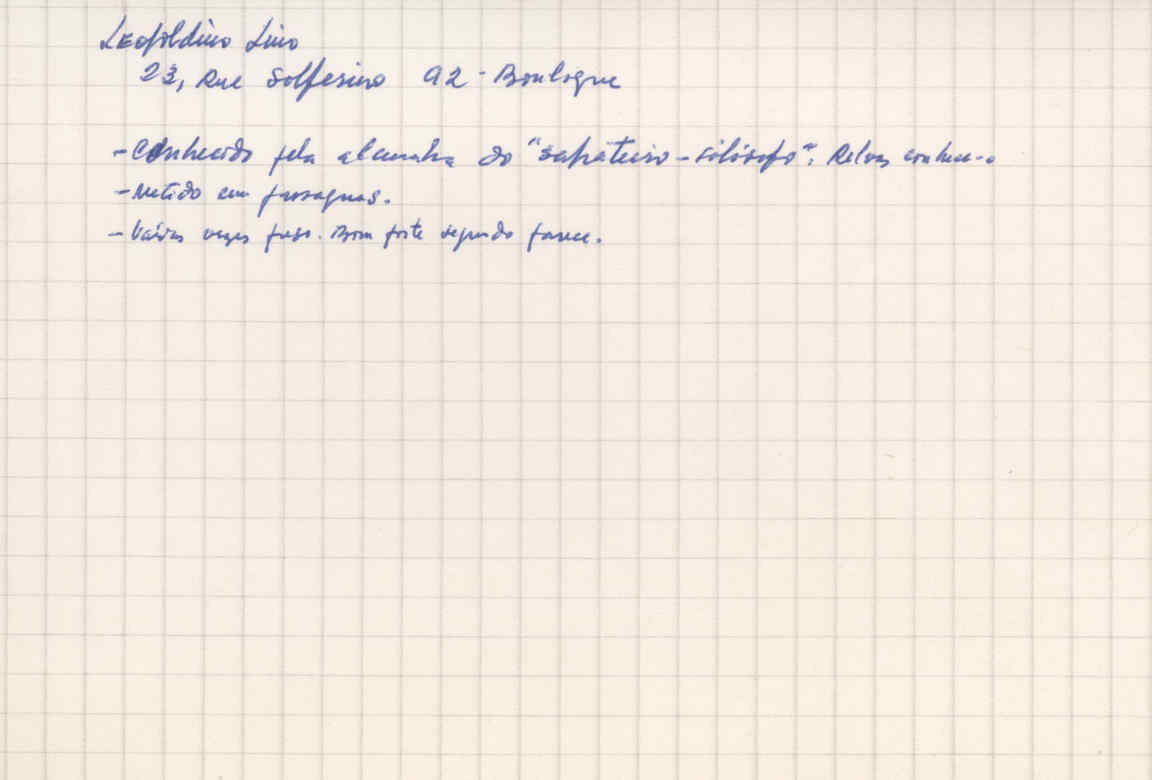 Leopoldino Lino
23, Rue Solferino 92 - Boulogne
- Conhecido pela alcunha do "sapateiro-filósofo". Relvas conhece-o
- Metido em passagens.
- Várias vezes preso. Bom porte segundo parece.